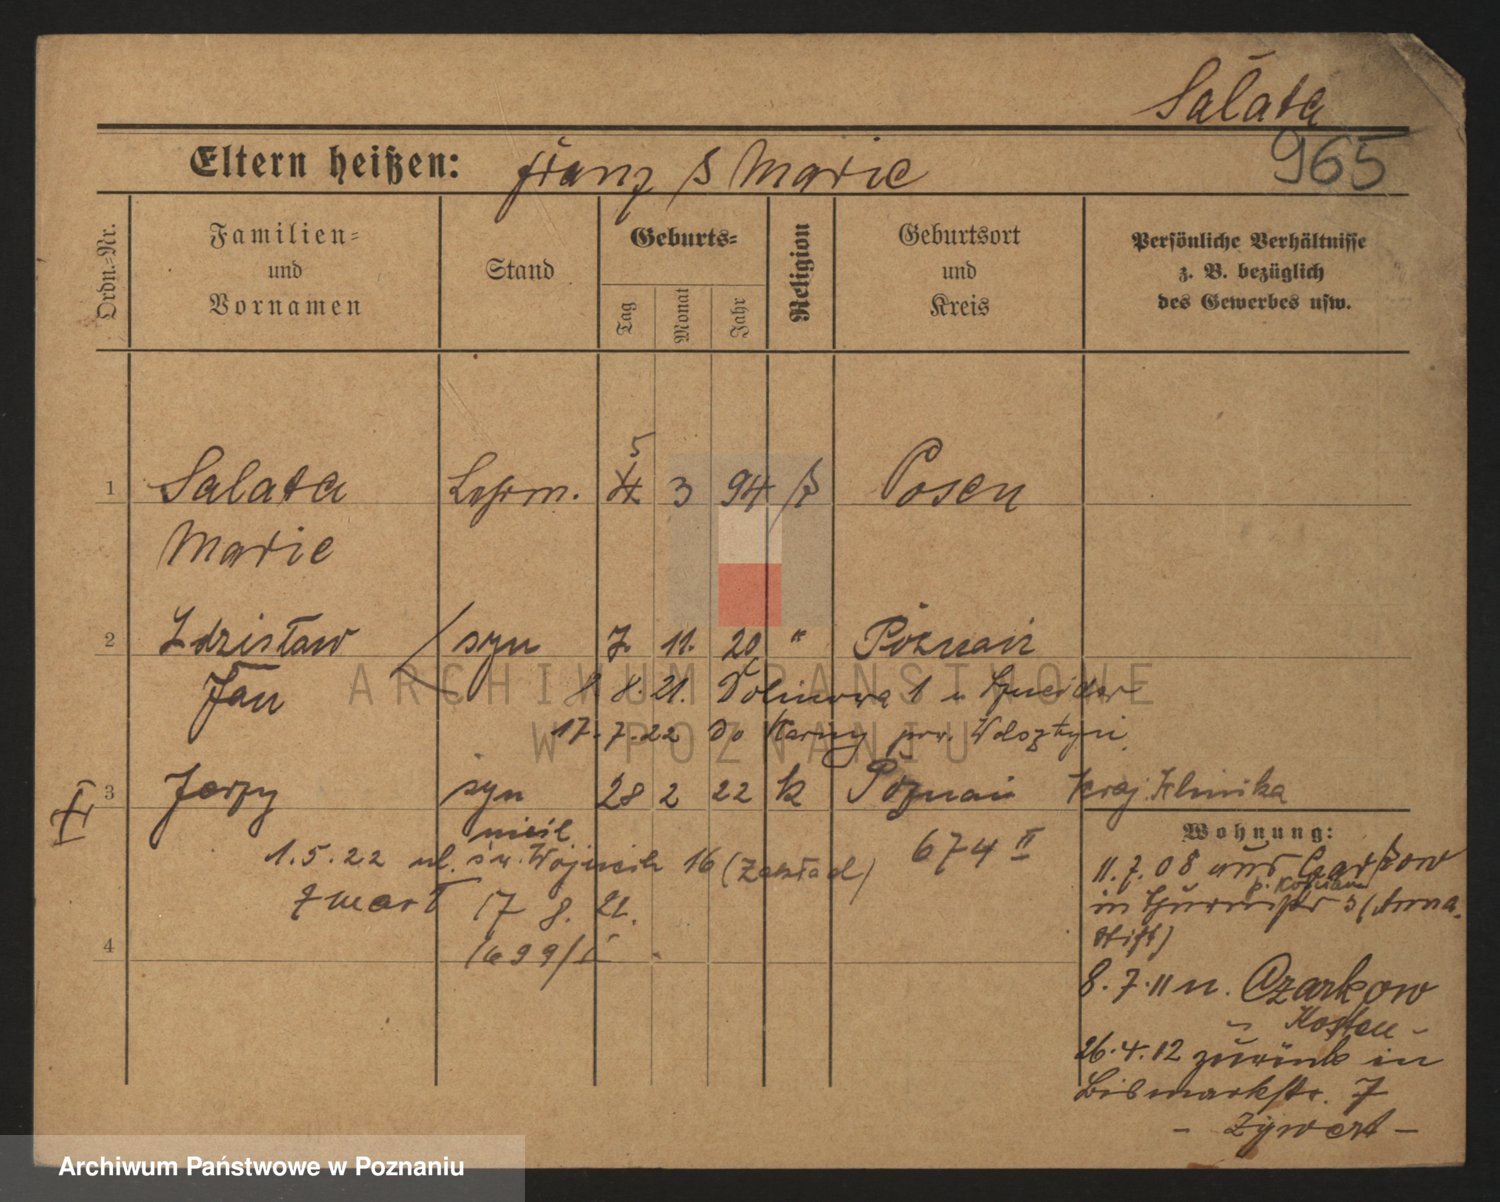 Salata
965
Eltern heißen: Franz & Marie
Ordn.-Nr.
Familien-
und
Vornamen
Stand
Geburts-
Tag
Monat
Jahr
Religion
Geburtsort
und
Kreis
Persönliche Verhältnisse
z. B. bezüglich
des Gewerbes usw.
5
1 Salata 4 3 94 Posen
Marie
2 Zdzisław syn 7. 11. 20 " Poznań
Jan
8. 8. 21. Dolinowa 1
17.7.22 do Karny pow. Wolsztyn
3 Jerzy syn 28 2 22 k Poznań Kraj. Klinika
II
nieśl.
674 II
1.5.22 ul. św. Wojciech 16 (Zakład)
zmarł 17 8. 22.
1699/
4
Wohnung:
11.7.08 aus Czarkow
in 3 (Anna-
stift)
8.7.11 n. Czarkow
- Kosten -
26.4.12 zurück in
Bismarckstr. 7
- Zywert -
ARCHIWUM PAŃSTWOWE
W POZNANIU
Archiwum Państwowe w Poznaniu